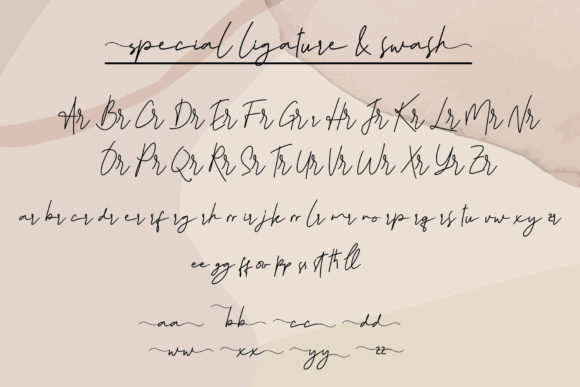 special ligature & swash
Ar Br Cr Dr Er Fr Gr r Hr Jr Kr Lr Mr Nr
Or Pr Qr Rr Sr Tr Ur Vr Wr Xr Yr Zr
ar br cr dr er rf rg rh rr ir jk rr lr mr no rp rq rs tu vw xy zr
ee gg ff oo pp sr st th ll
aa bb cc dd
ww xx yy zz